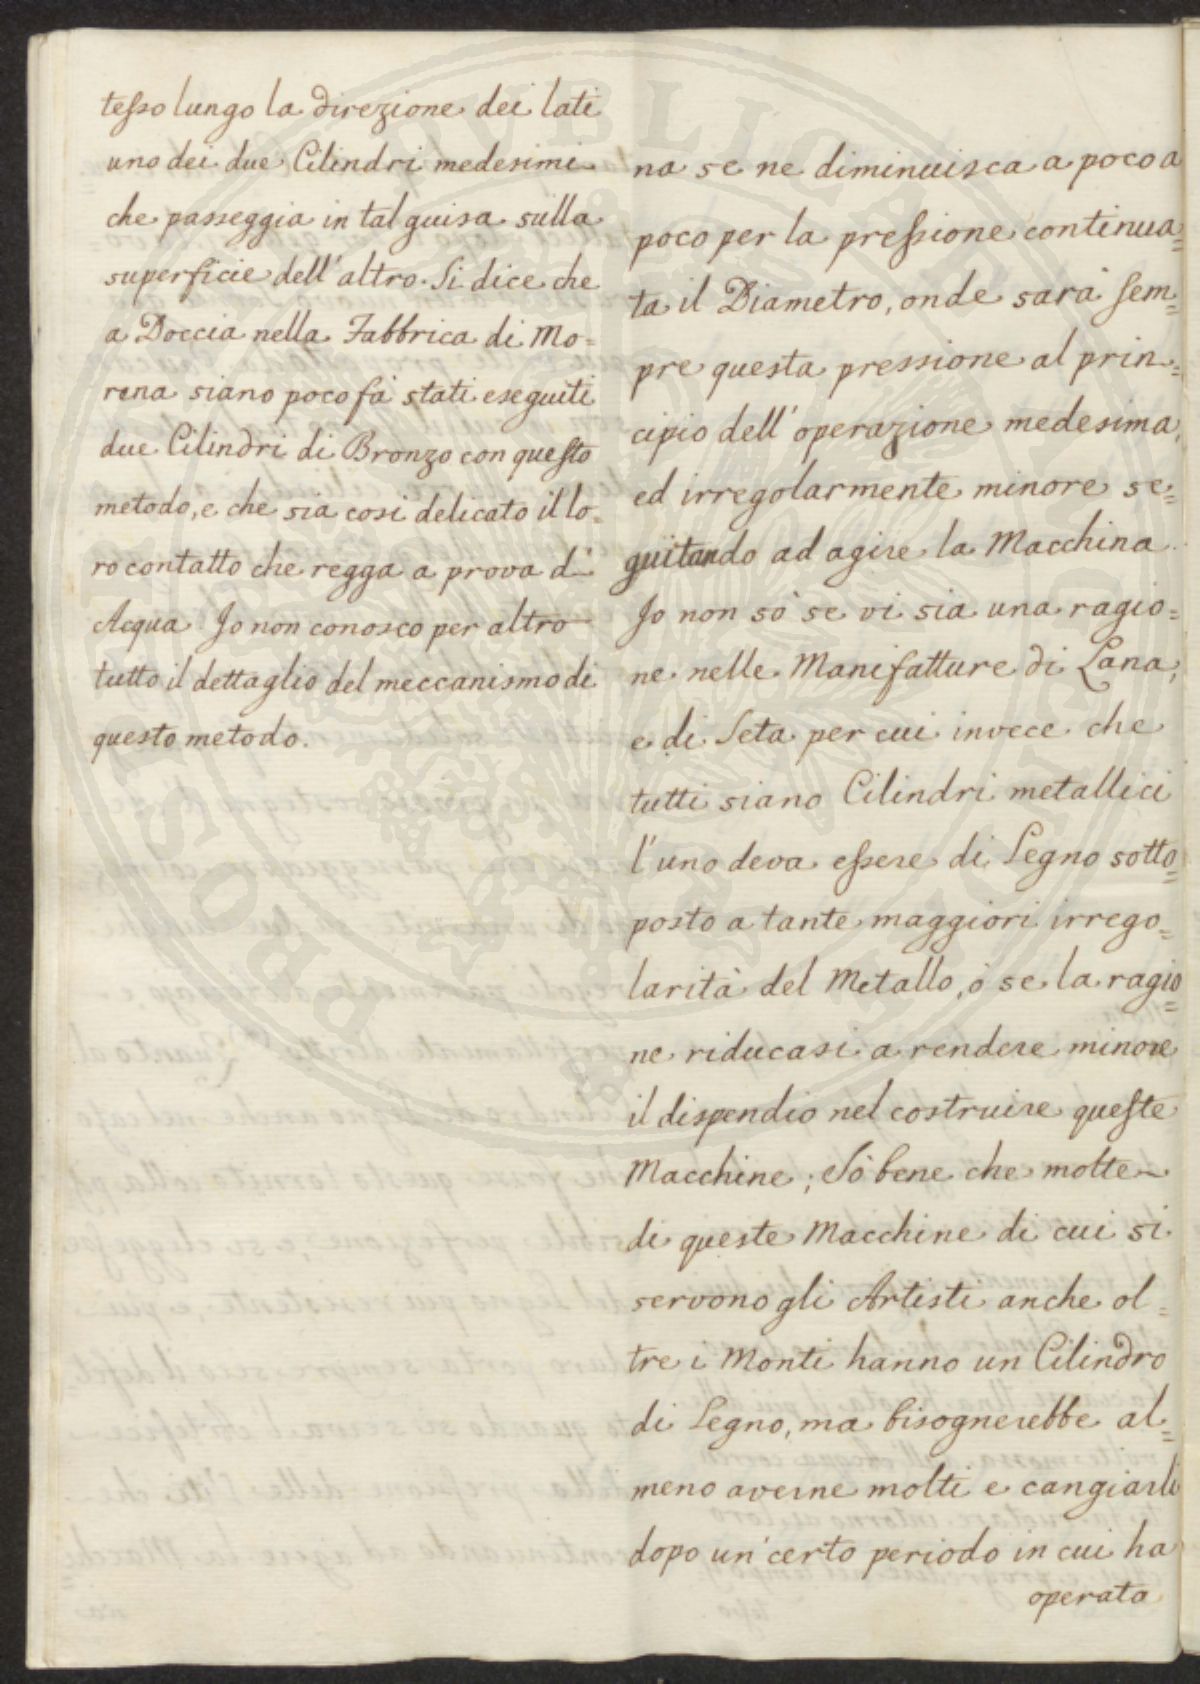 tesso lungo la direzione dei lati
uno dei due Cilindri medesimi
che passeggia in tal guisa sulla
superficie dell'altro. Si dice che
a Doccia nella Fabbrica di Mo=
rena siano poco fà stati eseguiti
due Cilindri di Bronzo con questo
metodo, e che sia così delicato il lo=
ro contatto che regga a prova d'
Acqua. Jo non conosco per altro
tutto il dettaglio del meccanismo di
questo metodo.
na se ne diminuisca a poco a
poco per la pressione continua=
ta il Diametro, onde sarà sem=
pre questa pressione al prin=
cipio dell'operazione medesima,
ed irregolarmente minore se=
guitando ad agire la Macchina.
Jo non sò se vi sia una ragio=
ne nelle Manifatture di Lana,
e di Seta per cui invece che
tutti siano Cilindri metallici
l'uno deva essere di Legno sotto=
posto a tante maggiori irrego=
larità del Metallo, ò se la ragio=
ne riducasi a rendere minore
il dispendio nel costruire queste
Macchine; Sò bene che molte
di queste Macchine di cui si
servono gli Artisti anche ol=
tre i Monti hanno un Cilindro
di Legno, ma bisognerebbe al=
meno averne molti e cangiarli
dopo un'certo periodo in cui ha
operata